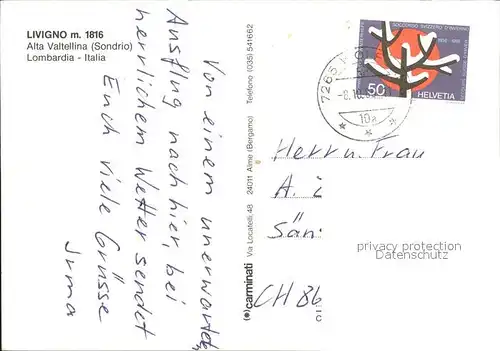 LIVIGNO m. 1816
Alta Valtellina (Sondrio)
Lombardia - Italia
Von einem unerwarteten
Ausflug nach hier, bei
herrlichem Wetter sendet
Euch viele Grüsse
Irma
(e) carminati Via Locatelli 48 24011 Alme (Bergamo) Telefono (035) 541662
SOCCORSO SVIZZERO D'INVERNO
50
HELVETIA
7265
10
Herrn u. Frau
A.
CH 86
privacy protection
Datenschutz